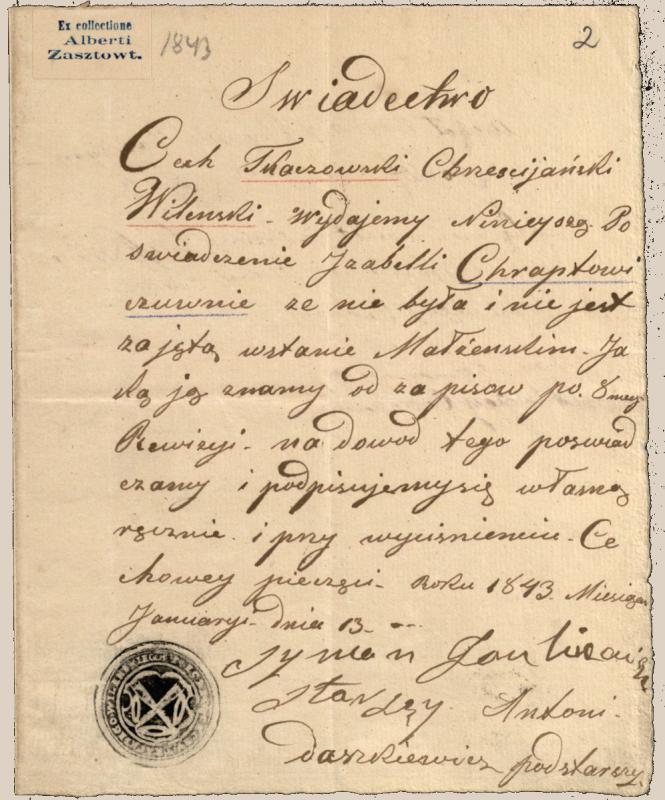 Ex collectione
Alberti
Zasztowt.
1843
2
Swiadectwo
Cech Tkaczowski Chrzescijański
Wilenski - Wydajemy Ninieysze Po
swiadczenie Jzabelli Chraptowi
czuwnie ze nie była i nie jest
zajętą wstanie Małżenskim. Ja
ką ją znamy od zapisow po. 8mey
Rewizyi - na dowod tego poswiad
czamy i podpisujemysię własną
ręcznie. i przy wyciśnieniu - Ce
chowey pieczęci - Roku 1843. Miesiąca
Januaryi - dnia 13 -
Symon
Starszy Antoni
daszkiewicz podstarszy